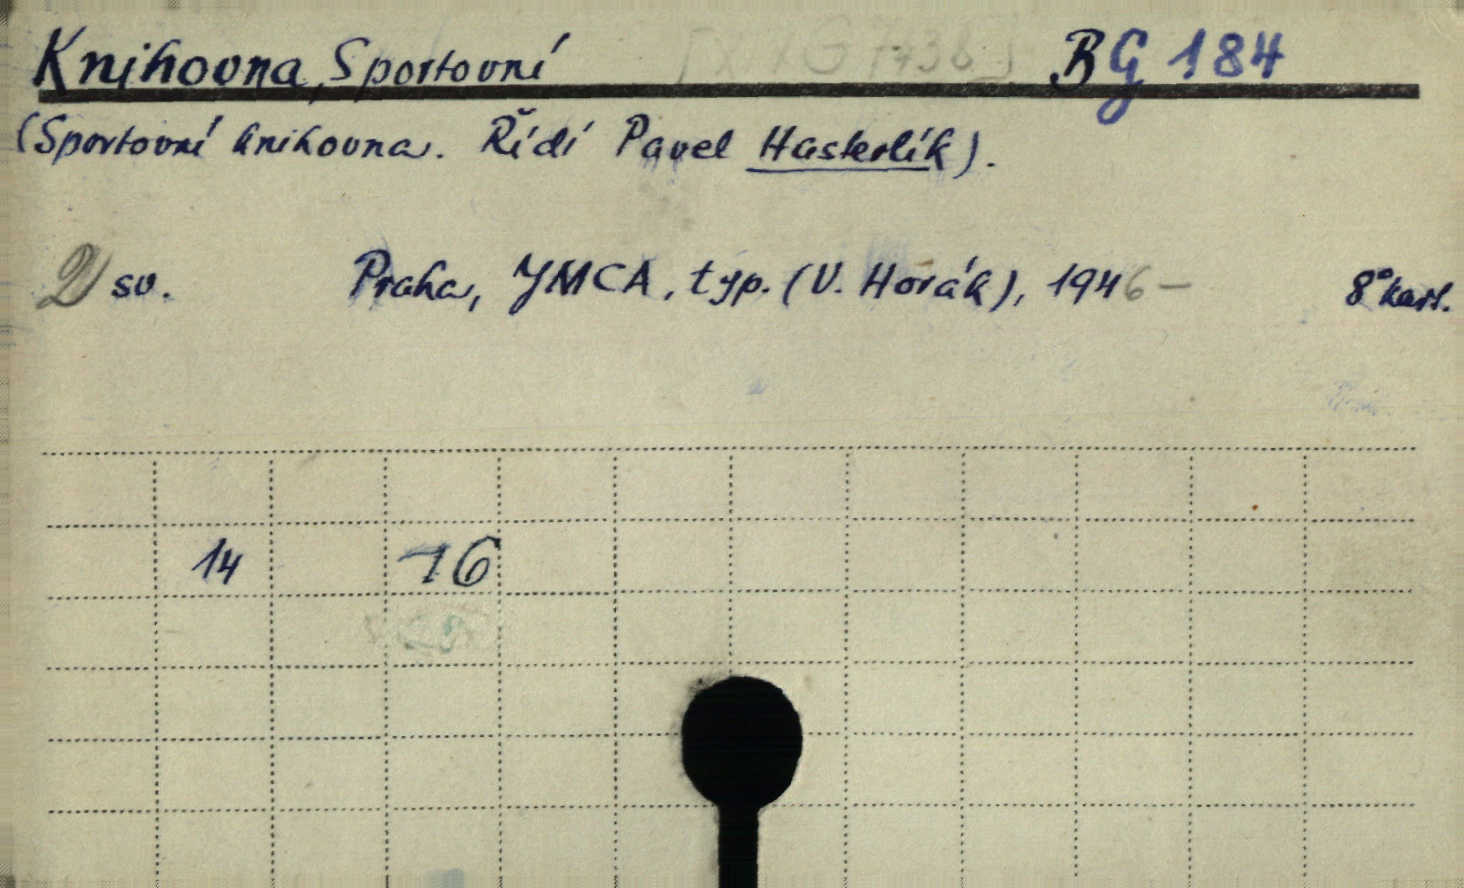 Knihovna, Sportovní BG 184
(Sportovní knihovna. Řídí Pavel Hasterlík).
2 sv. Praha, YMCA, typ. (V. Horák), 1946 – 8° kart.
14 16